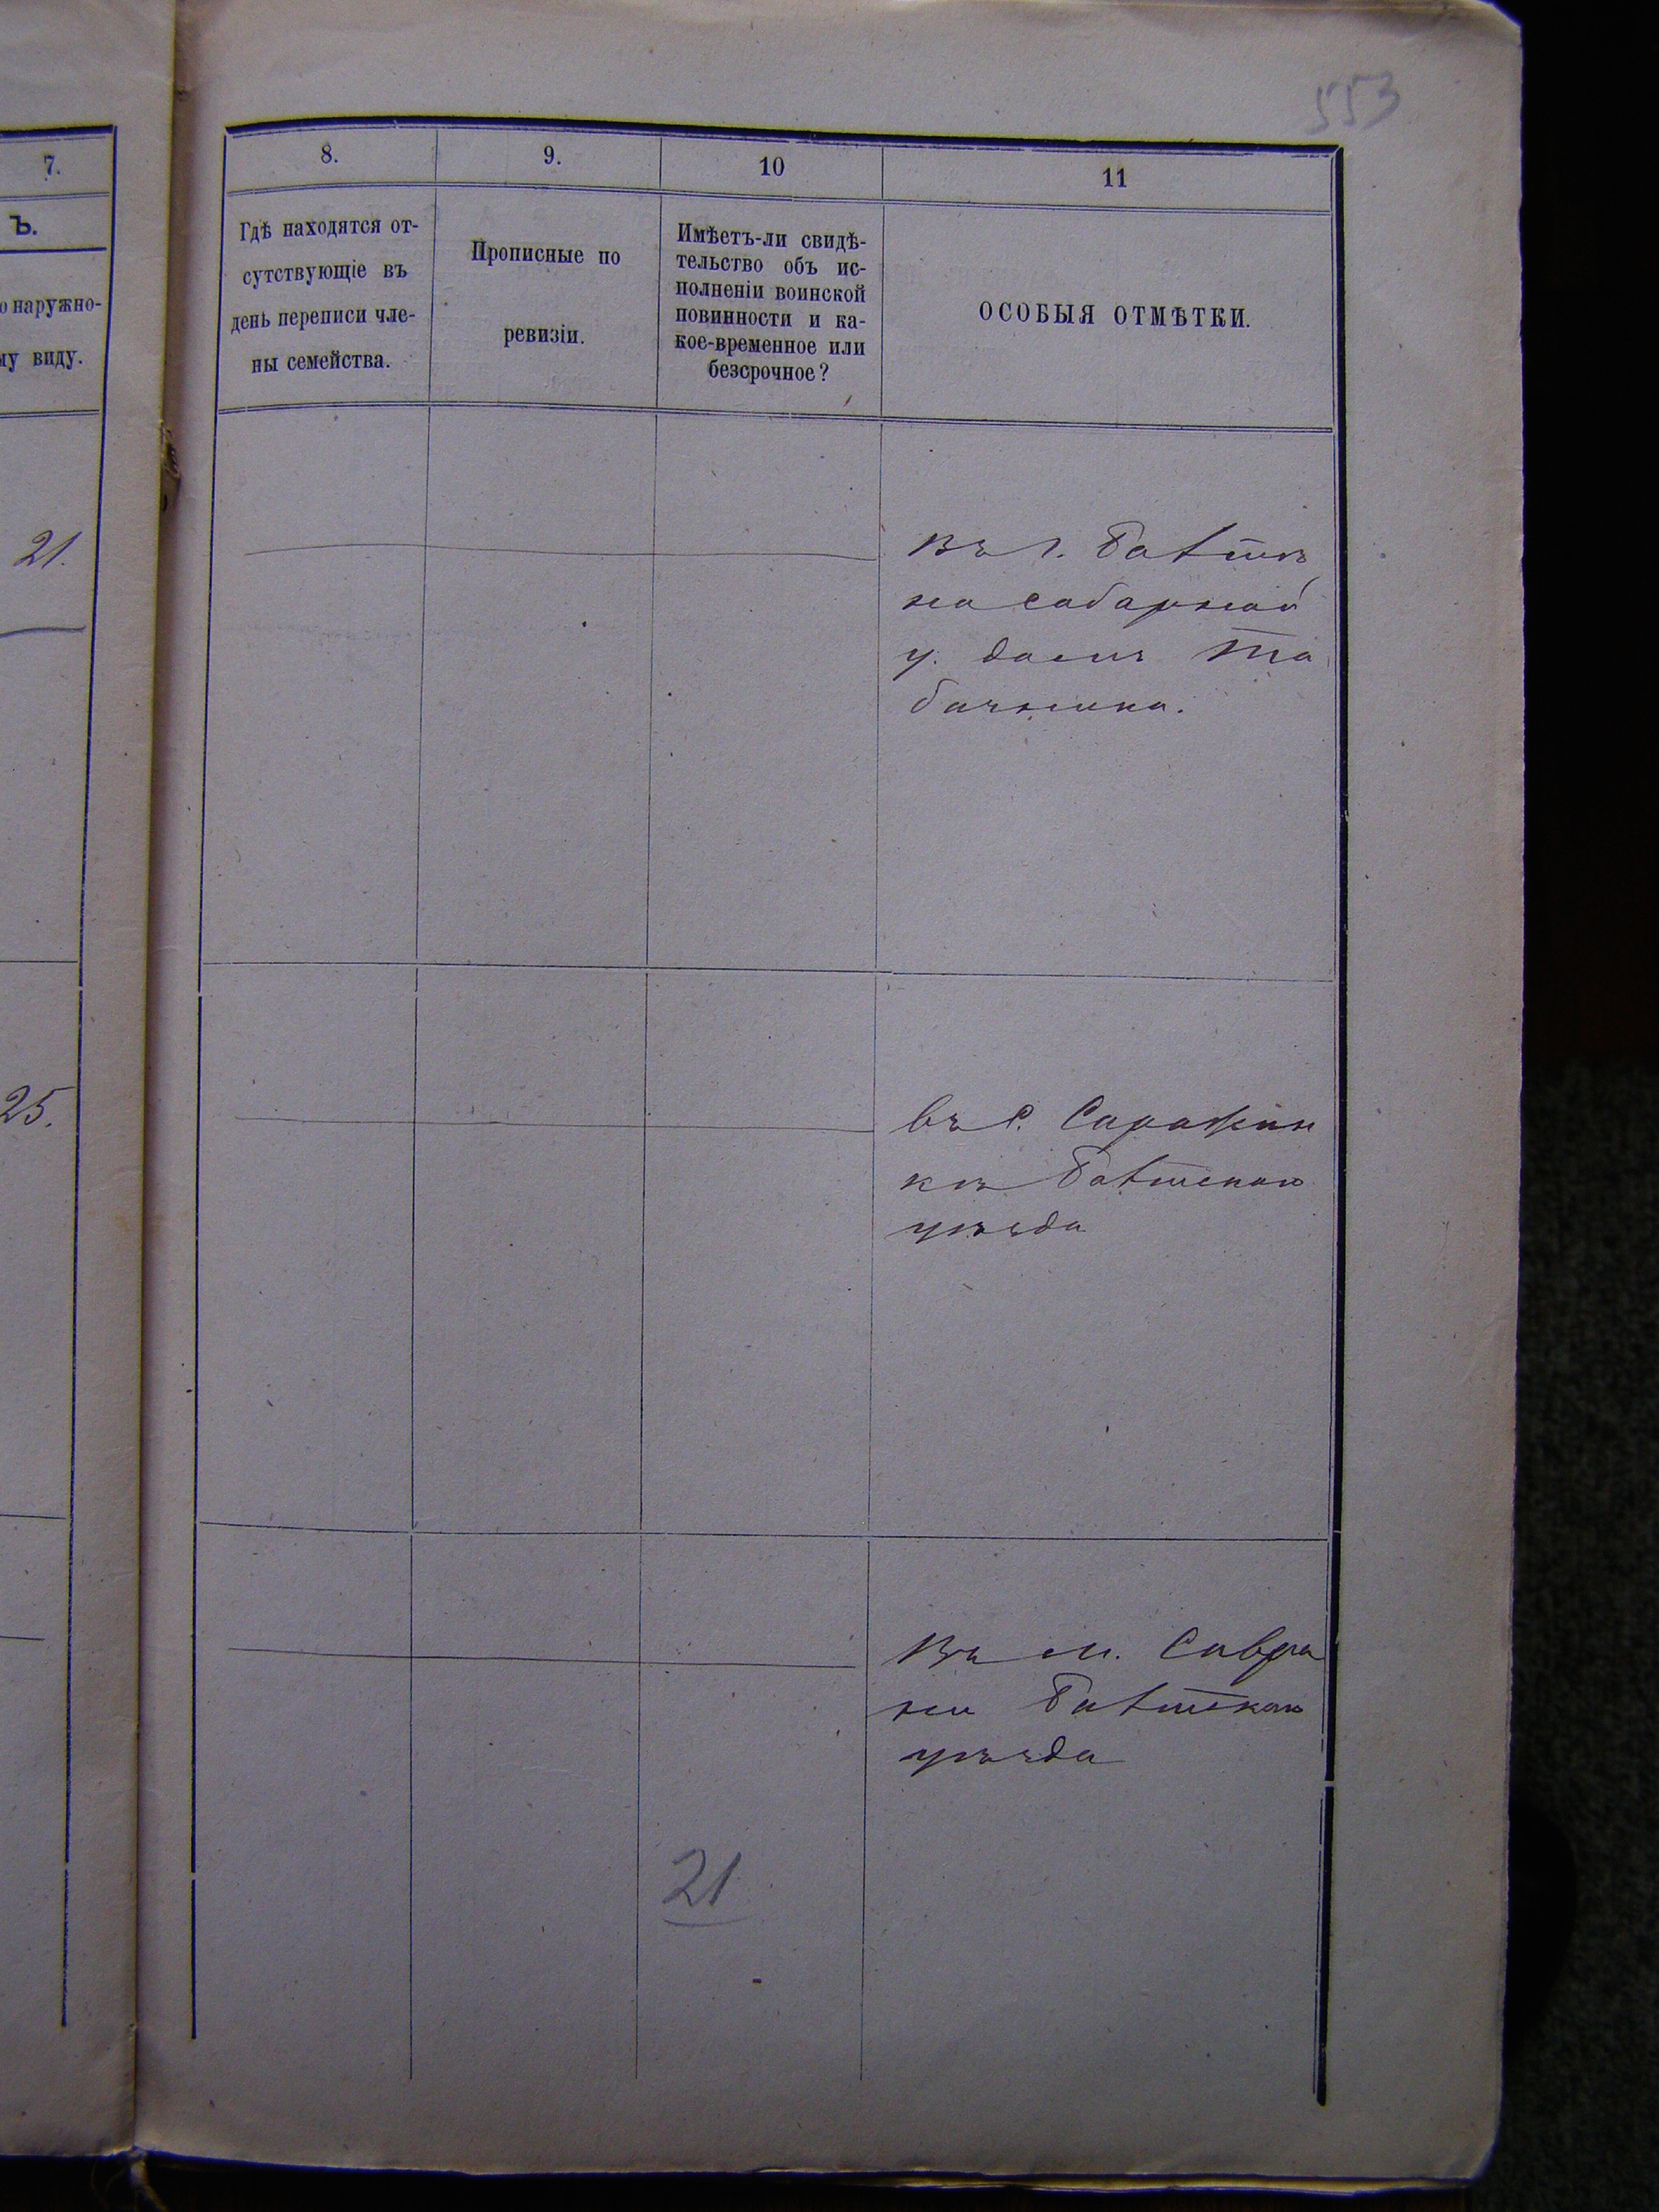 553
7.
8.
9.
10
11
Ъ.
о наружно-
му виду.
Гдѣ находятся от-
сутствующіе въ
день переписи чле-
ны семейства.
Прописные по
ревизіи.
Имѣетъ-ли свидѣ-
тельство объ ис-
полненіи воинской
повинности и ка-
кое-временное или
безсрочное?
ОСОБЫЯ ОТМѢТКИ.
21.
въ г. Балтѣ
на соборной
у. домъ Та
бачника.
25.
въ с.
кѣ Балтскаго
уѣзда
въ м. Савра
ни Балтскаго
уѣзда
21